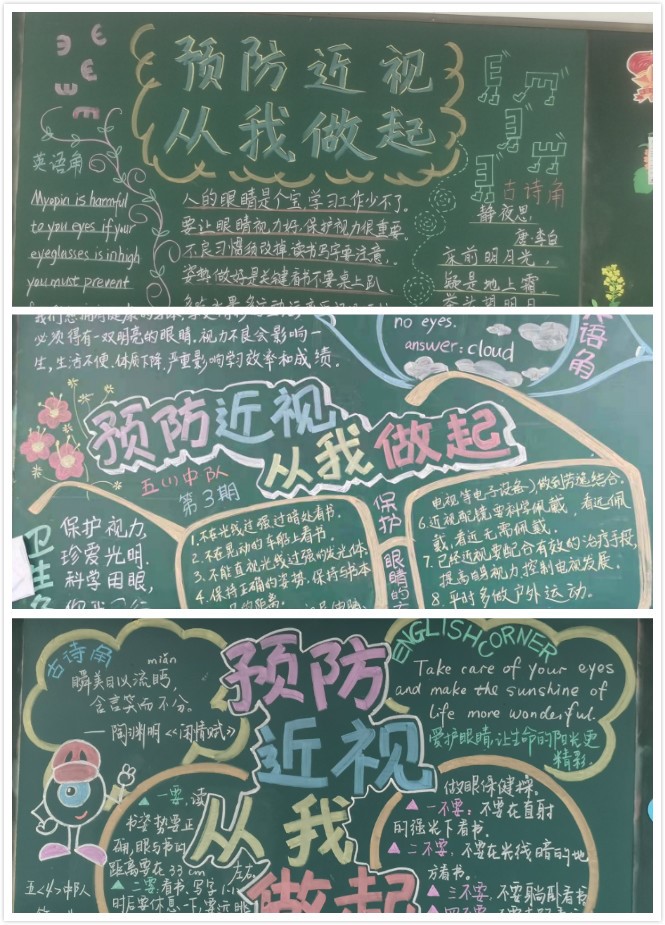 预防近视
从我做起
英语角
Myopia is harmful
to you eyes if your
eyeglasses is in high
you must prevent
人的眼睛是个宝学习工作少不了。
要让眼睛视力好,保护视力很重要。
不良习惯须改掉,读书写字要注意。
姿势做好是关键,看书不要桌上趴
古诗角
静夜思
唐:李白
床前明月光,
疑是地上霜
必须得有一双明亮的眼睛。视力不良会影响一
生,生活不便,体质下降,严重影响学习效率和成绩。
no eyes.
answer: cloud
语角
预防近视
从我做起
五(1)中队
第3期
卫生角
保护视力,
珍爱光明.
科学用眼,
1.不在光线过强过暗处看书.
2.不在晃动的车船上看书.
3.不能直视光线过强的发光体.
4.保持正确的姿势,保持与书本
保护
眼睛的方
电视等电子设备),做到劳逸结合.
6.近视配镜要科学佩戴,看远佩
戴,看近无需佩戴.
7.已经近视要配合有效的治疗手段,
提高明视力,控制电视发展.
8.平时多做户外运动。
古诗角
miǎn
瞬美目以流眄,
含言笑而不分。
——陶渊明《闲情赋》
预防
近视
从我
做起
ENGLISH CORNER
Take care of your eyes
and make the sunshine of
life more wonderful.
爱护眼睛,让生命的阳光更
精彩.
一要:读
书姿势要正
确,眼与书的
距离要在33cm左右。
二要:看书、写字1小
时后要休息一下,要远眺
五<4>中队
做眼保健操。
一不要:不要在直射
的强光下看书.
二不要:不要在光线暗的地
方看书.
三不要:不要躺卧看书